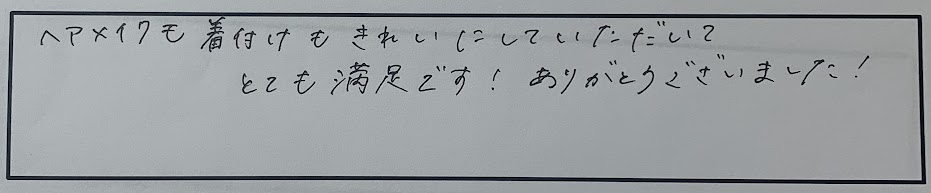 ヘアメイクも着付けもきれいにしていただいて
とても満足です！ありがとうございました！